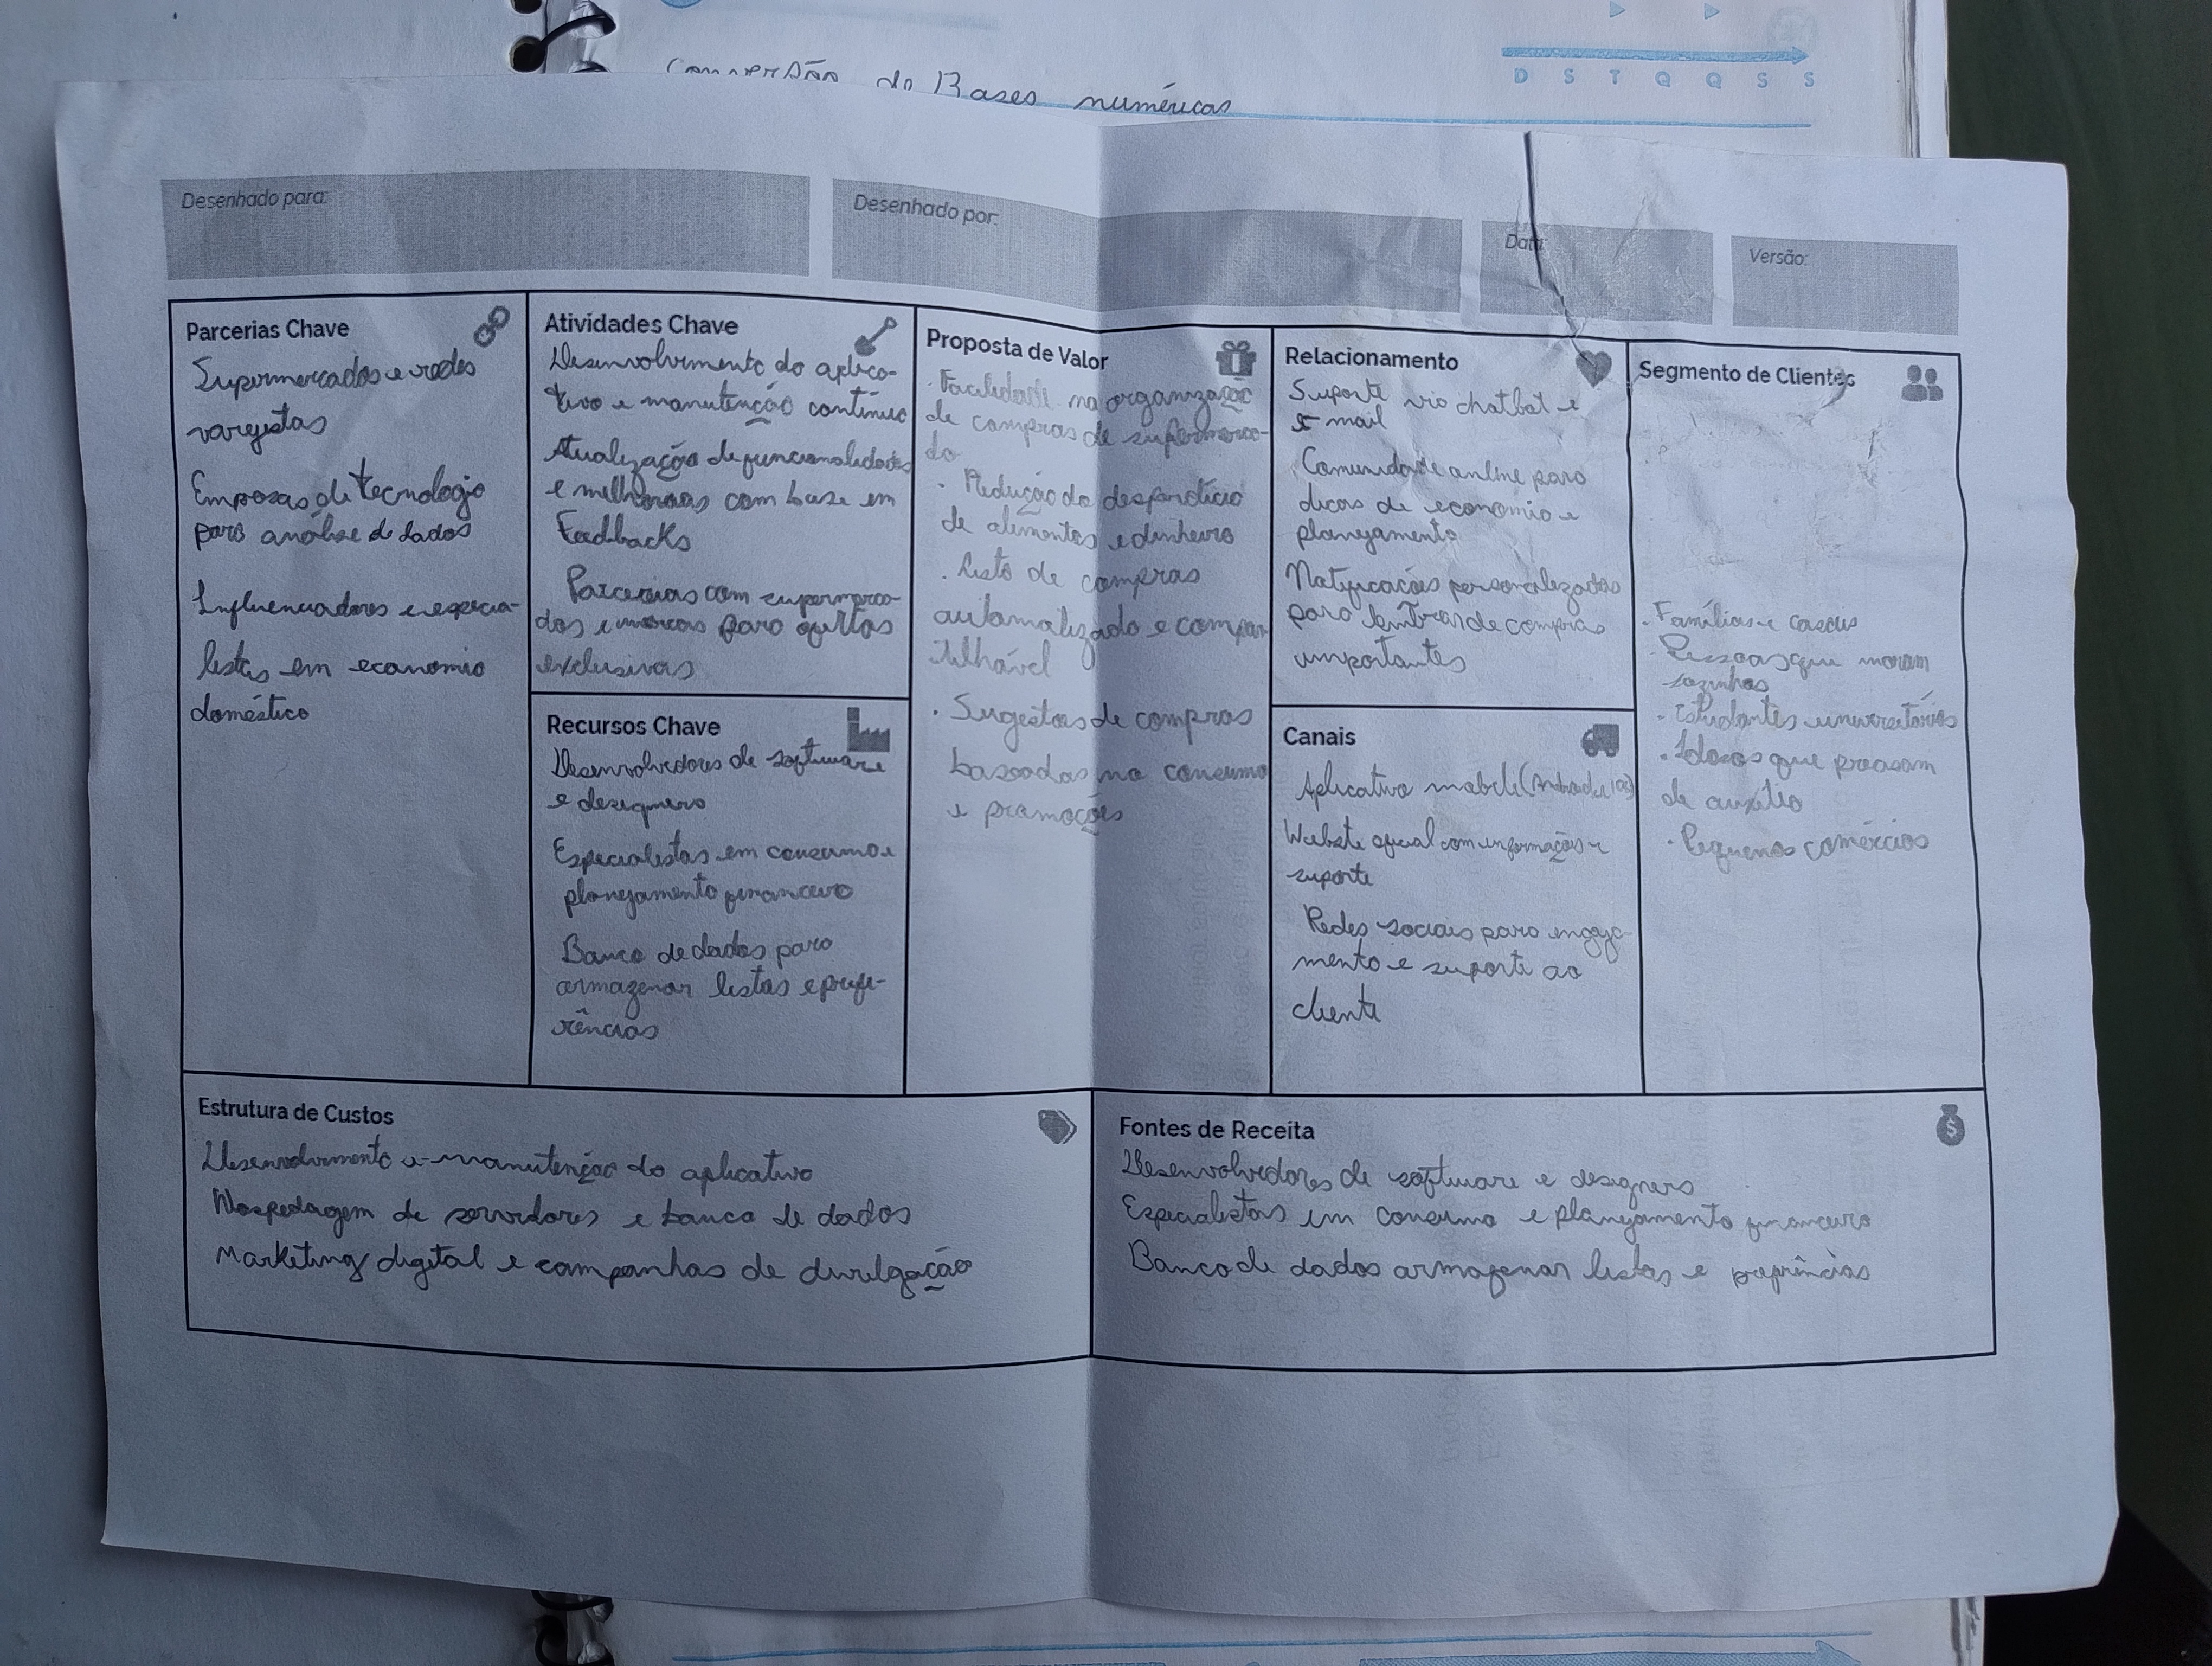 Conversão de Bases numéricas
D S T Q Q S S
Desenhado para:
Desenhado por:
Data:
Versão:
Parcerias Chave
Supermercados e redes
varejistas
Empresas de tecnologia
para análise de dados
Influenciadores e especia-
listas em economia
doméstica
Atividades Chave
Desenvolvimento do aplica-
tivo e manutenção contínua
Atualização de funcionalidades
e melhorias com base em
Feedbacks
Parcerias com supermerca-
dos e marcas para ofertas
exclusivas
Recursos Chave
Desenvolvedores de software
e designers
Especialistas em consumo e
planejamento financeiro
Banco de dados para
armazenar listas e prefe-
rências
Proposta de Valor
· Facilidade na organização
de compras de supermerca-
do
· Redução do desperdício
de alimentos e dinheiro
· Lista de compras
automatizada e compar-
tilhável
· Sugestões de compras
baseadas no consumo
e promoções
Relacionamento
Suporte via chatbot e
e-mail
Comunidade online para
dicas de economia e
planejamento
Notificações personalizadas
para lembrar de compras
importantes
Canais
Aplicativo mobile (Android e IOS)
Website oficial com informações e
suporte
Redes sociais para engaja-
mento e suporte ao
cliente
Segmento de Clientes
· Famílias e casais
· Pessoas que moram
sozinhas
· Estudantes universitários
· Idosos que precisam
de auxílio
· Pequenos comércios
Estrutura de Custos
Desenvolvimento e manutenção do aplicativo
Hospedagem de servidores e banco de dados
Marketing digital e campanhas de divulgação
Fontes de Receita
Desenvolvedores de software e designers
Especialistas em consumo e planejamento financeiro
Banco de dados armazenar listas e